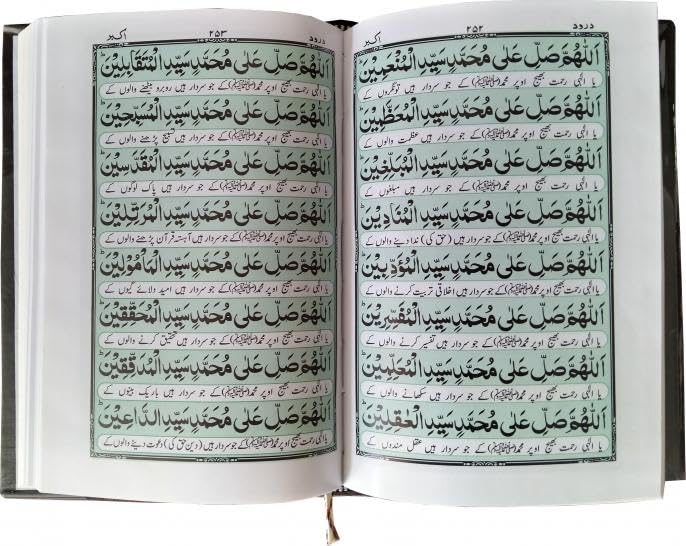 درود ۲۵۲ اکبر
اَللّٰهُمَّ صَلِّ عَلٰى مُحَمَّدٍ سَيِّدِ الْمُنْعَمِيْنَ ؕ
یا الٰہی رحمت بھیج اوپر محمد(ﷺ)کے جو سردار ہیں تونگروں کے
اَللّٰهُمَّ صَلِّ عَلٰى مُحَمَّدٍ سَيِّدِ الْمُعَظَّمِيْنَ ؕ
یا الٰہی رحمت بھیج اوپر محمد(ﷺ)کے جو سردار ہیں عظمت والوں کے
اَللّٰهُمَّ صَلِّ عَلٰى مُحَمَّدٍ سَيِّدِ الْمُبَلِّغِيْنَ ؕ
یا الٰہی رحمت بھیج اوپر محمد(ﷺ)کے جو سردار ہیں مبلغوں کے
اَللّٰهُمَّ صَلِّ عَلٰى مُحَمَّدٍ سَيِّدِ الْمُنَادِيْنَ ؕ
یا الٰہی رحمت بھیج اوپر محمد(ﷺ)کے جو سردار ہیں (حق کی) ندا دینے والوں کے
اَللّٰهُمَّ صَلِّ عَلٰى مُحَمَّدٍ سَيِّدِ الْمُؤَدِّبِيْنَ ؕ
یا الٰہی رحمت بھیج اوپر محمد(ﷺ)کے جو سردار ہیں اخلاقی تربیت کرنے والوں کے
اَللّٰهُمَّ صَلِّ عَلٰى مُحَمَّدٍ سَيِّدِ الْمُفَسِّرِيْنَ ؕ
یا الٰہی رحمت بھیج اوپر محمد(ﷺ)کے جو سردار ہیں تفسیر کرنے والوں کے
اَللّٰهُمَّ صَلِّ عَلٰى مُحَمَّدٍ سَيِّدِ الْمُعَلِّمِيْنَ ؕ
یا الٰہی رحمت بھیج اوپر محمد(ﷺ)کے جو سردار ہیں سکھانے والوں کے
اَللّٰهُمَّ صَلِّ عَلٰى مُحَمَّدٍ سَيِّدِ الْعٰقِلِيْنَ ؕ
یا الٰہی رحمت بھیج اوپر محمد(ﷺ)کے جو سردار ہیں عقل مندوں کے
درود ۲۵۳ اکبر
اَللّٰهُمَّ صَلِّ عَلٰى مُحَمَّدٍ سَيِّدِ الْمُتَقَابِلِيْنَ ؕ
یا الٰہی رحمت بھیج اوپر محمد(ﷺ)کے جو سردار ہیں روبرو بیٹھنے والوں کے
اَللّٰهُمَّ صَلِّ عَلٰى مُحَمَّدٍ سَيِّدِ الْمُسَبِّحِيْنَ ؕ
یا الٰہی رحمت بھیج اوپر محمد(ﷺ)کے جو سردار ہیں تسبیح پڑھنے والوں کے
اَللّٰهُمَّ صَلِّ عَلٰى مُحَمَّدٍ سَيِّدِ الْمُقَدَّسِيْنَ ؕ
یا الٰہی رحمت بھیج اوپر محمد(ﷺ)کے جو سردار ہیں پاک لوگوں کے
اَللّٰهُمَّ صَلِّ عَلٰى مُحَمَّدٍ سَيِّدِ الْمُرَتِّلِيْنَ ؕ
یا الٰہی رحمت بھیج اوپر محمد(ﷺ)کے جو سردار ہیں آہستہ قرآن پڑھنے والوں کے
اَللّٰهُمَّ صَلِّ عَلٰى مُحَمَّدٍ سَيِّدِ الْمَأْمُوْلِيْنَ ؕ
یا الٰہی رحمت بھیج اوپر محمد(ﷺ)کے جو سردار ہیں امید دلائے گیوں کے
اَللّٰهُمَّ صَلِّ عَلٰى مُحَمَّدٍ سَيِّدِ الْمُحَقِّقِيْنَ ؕ
یا الٰہی رحمت بھیج اوپر محمد(ﷺ)کے جو سردار ہیں تحقیق کرنے والوں کے
اَللّٰهُمَّ صَلِّ عَلٰى مُحَمَّدٍ سَيِّدِ الْمُدَقِّقِيْنَ ؕ
یا الٰہی رحمت بھیج اوپر محمد(ﷺ)کے جو سردار ہیں باریک بینوں کے
اَللّٰهُمَّ صَلِّ عَلٰى مُحَمَّدٍ سَيِّدِ الدَّاعِيْنَ ؕ
یا الٰہی رحمت بھیج اوپر محمد(ﷺ)کے جو سردار ہیں (دین حق کی) دعوت دینے والوں کے